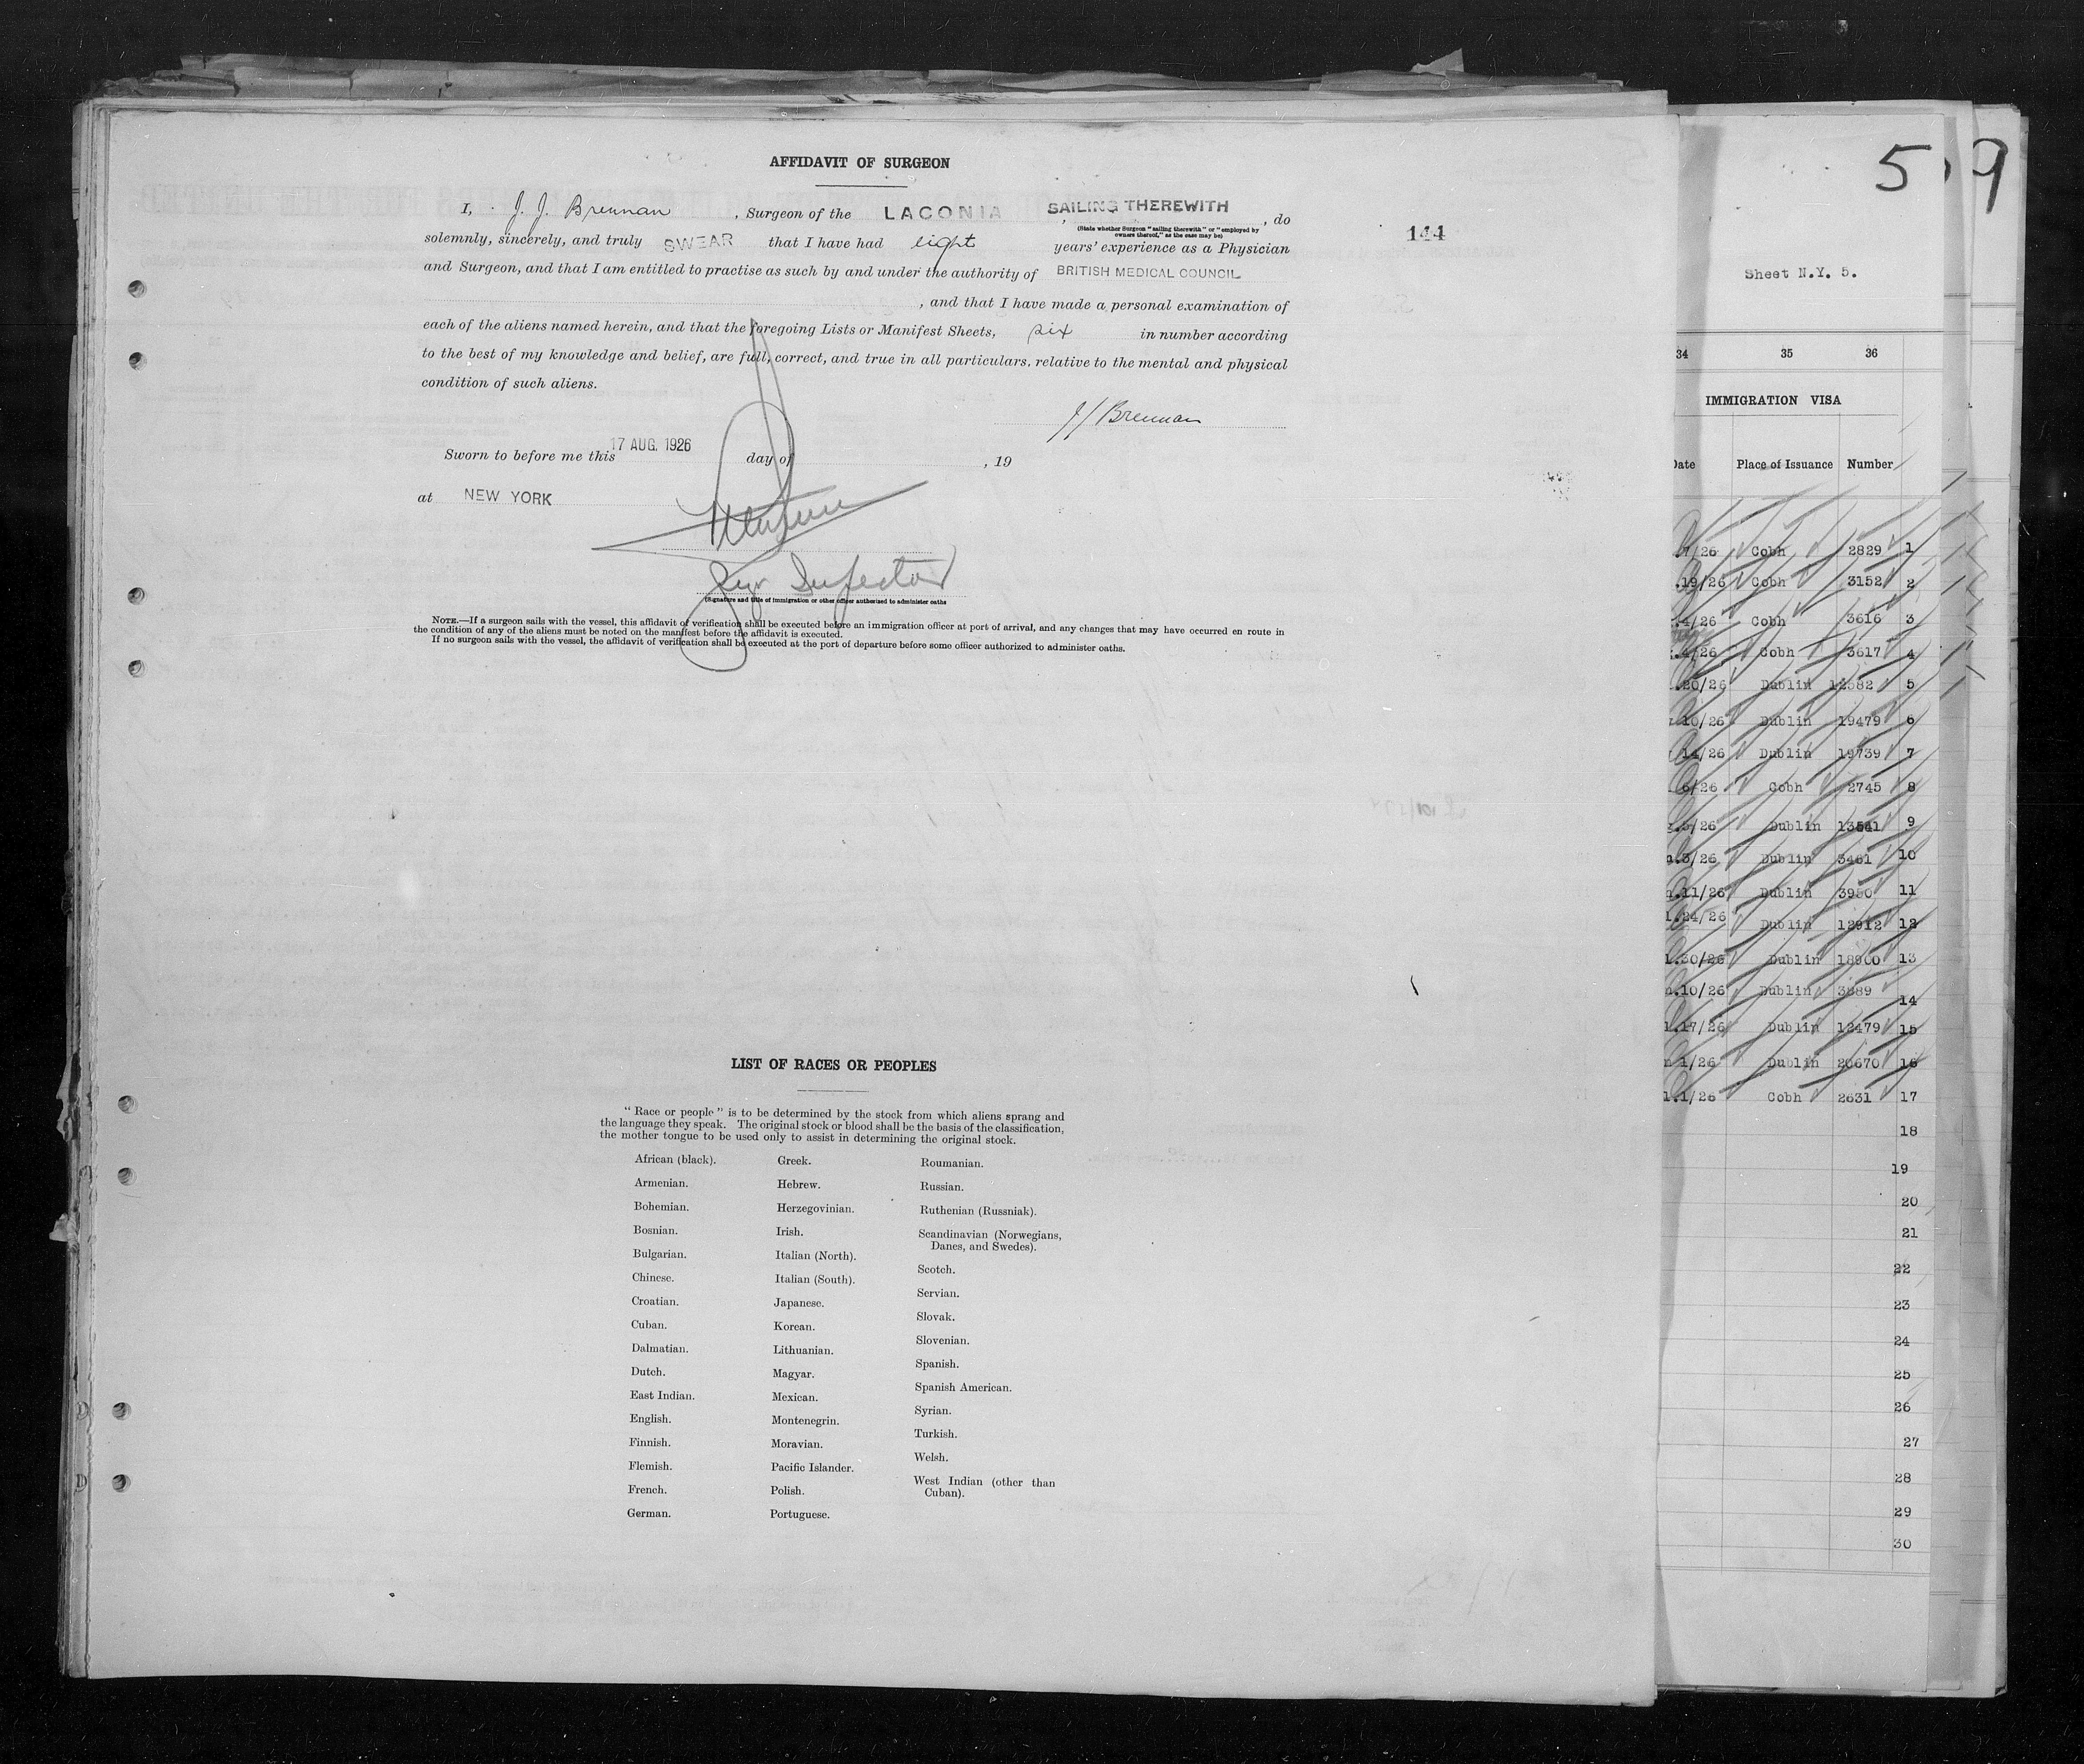 AFFIDAVIT OF SURGEON
I, J. J. Brennan, Surgeon of the LACONIA, SAILING THEREWITH, do
(State whether Surgeon "sailing therewith" or "employed by
owners thereof," as the case may be)
solemnly, sincerely, and truly SWEAR that I have had eight years' experience as a Physician
and Surgeon, and that I am entitled to practise as such by and under the authority of BRITISH MEDICAL COUNCIL
, and that I have made a personal examination of
each of the aliens named herein, and that the foregoing Lists or Manifest Sheets, six in number according
to the best of my knowledge and belief, are full, correct, and true in all particulars, relative to the mental and physical
condition of such aliens.
JJ Brennan
Sworn to before me this 17 AUG. 1926 day of , 19
at NEW YORK
Inspector
(Signature and title of immigration or other officer authorized to administer oaths
NOTE.—If a surgeon sails with the vessel, this affidavit of verification shall be executed before an immigration officer at port of arrival, and any changes that may have occurred en route in
the condition of any of the aliens must be noted on the manifest before the affidavit is executed.
If no surgeon sails with the vessel, the affidavit of verification shall be executed at the port of departure before some officer authorized to administer oaths.
144
LIST OF RACES OR PEOPLES
"Race or people" is to be determined by the stock from which aliens sprang and
the language they speak. The original stock or blood shall be the basis of the classification,
the mother tongue to be used only to assist in determining the original stock.
African (black).
Armenian.
Bohemian.
Bosnian.
Bulgarian.
Chinese.
Croatian.
Cuban.
Dalmatian.
Dutch.
East Indian.
English.
Finnish.
Flemish.
French.
German.
Greek.
Hebrew.
Herzegovinian.
Irish.
Italian (North).
Italian (South).
Japanese.
Korean.
Lithuanian.
Magyar.
Mexican.
Montenegrin.
Moravian.
Pacific Islander.
Polish.
Portuguese.
Roumanian.
Russian.
Ruthenian (Russniak).
Scandinavian (Norwegians,
Danes, and Swedes).
Scotch.
Servian.
Slovak.
Slovenian.
Spanish.
Spanish American.
Syrian.
Turkish.
Welsh.
West Indian (other than
Cuban).
5
9
Sheet N.Y. 5.
34 35 36
IMMIGRATION VISA
Date Place of Issuance Number
7/26 Cobh 2829 1
.19/26 Cobh 3152 2
.4/26 Cobh 3616 3
.4/26 Cobh 3617 4
.20/26 Dublin 12582 5
10/26 Dublin 19479 6
14/26 Dublin 19739 7
6/26 Cobh 2745 8
.5/26 Dublin 13541 9
.3/26 Dublin 3461 10
.11/26 Dublin 3950 11
.24/26 Dublin 12912 12
.30/26 Dublin 18900 13
.10/26 Dublin 3889 14
.17/26 Dublin 12479 15
1/26 Dublin 20670 16
.1/26 Cobh 2631 17
18
19
20
21
22
23
24
25
26
27
28
29
30